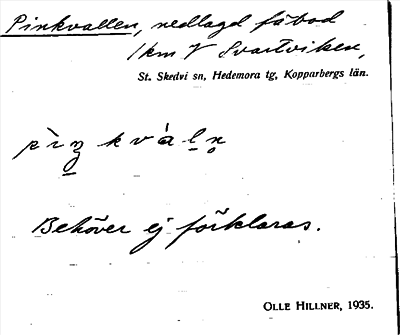 Pinkvallen, nedlagd fäbod
1 km V Svartviken,
St. Skedvi sn, Hedemora tg, Kopparbergs län.
Behöver ej förklaras.
OLLE HILLNER, 1935.